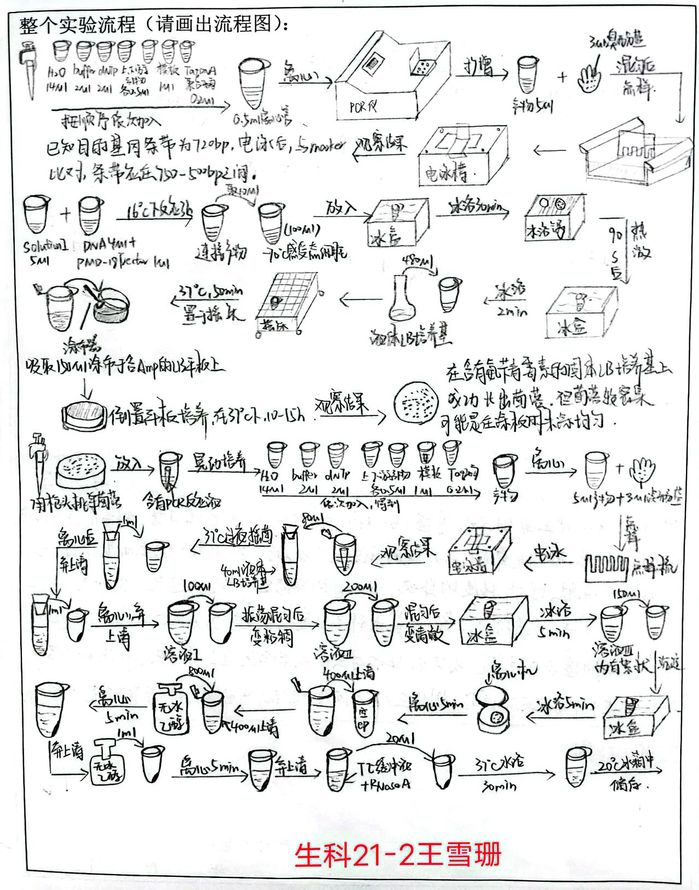 整个实验流程（请画出流程图）：
H₂O buffer dNTP 上下游引物 模板 TaqDNA聚合酶
14μl 2μl 2μl 各0.5μl 1μl 0.2μl
按顺序依次加入
0.5ml离心管
离心
PCR仪
扩增
产物5μl
混匀后
点样
电泳槽
观察结果
已知目的基因条带为720bp，电泳后，与marker
比对，条带应在750-500bp之间。
SolutionⅠ
5μl
DNA4μl+
PMD-18vector 1μl
16℃下反应3h
取10μl
连接产物
(100μl)
放入
冰盒
冰浴30min
水浴锅
热激
90s后
冰盒
冰浴
2min
480μl
液体LB培养基
摇床
37℃,50min
置于摇床
涂布器
吸取150μl涂布于含Amp的LB平板上
倒置平板培养，在37℃下，10-15h
观察结果
在含有氨苄青霉素的固体LB培养基上
成功长出菌落，但菌落较密集
可能是在涂板时未涂均匀.
用枪头挑单菌落
放入
含有PCR反应液
晃动培养
H₂O buffer dNTP 上下游引物 模板 Taq酶
14μl 2μl 2μl 各0.5μl 1μl 0.2μl
依次加入,得到
产物
离心
点样
电泳
电泳槽
观察结果
40ml液体
LB培养基
37℃过夜摇菌
1ml
离心后
弃上清
1ml
离心弃
上清
100μl
溶液Ⅰ
振荡混匀后
变粘稠
200μl
溶液Ⅱ
混匀后
冰盒
冰浴
5min
150μl
溶液Ⅲ
冰盒
冰浴5min
离心机
离心5min
400μl上清
400μl上清
800μl
无水
乙醇
离心
5min
弃上清
1ml
无水
乙醇
离心5min
弃上清
TE缓冲液
+RNaseA
20μl
37℃水浴
30min
20℃冰箱中
储存.
生科21-2王雪珊